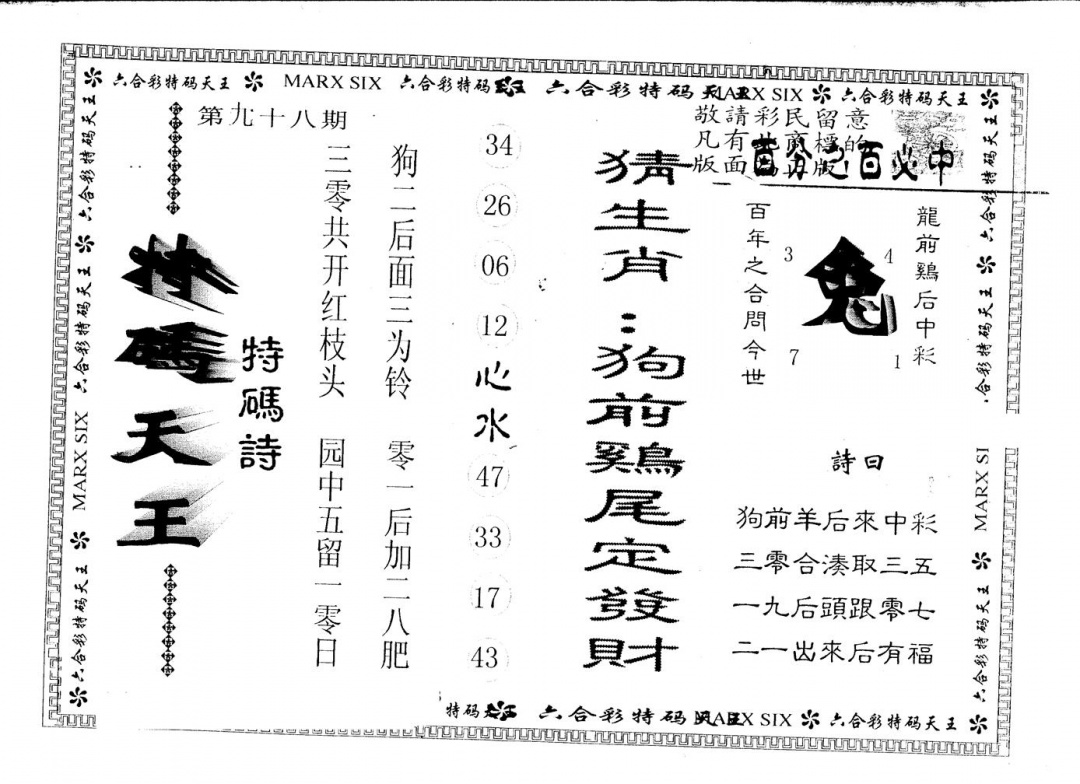 六合彩特码天王 MARX SIX 六合彩特码 六合彩特码 MARX SIX 六合彩特码天王
第九十八期
特碼天王
特碼詩
三零共开红枝头 园中五留一零日
狗二后面三为铃 零一后加二八肥
34
26
06
12
心水
47
33
17
43
猜生肖:狗前鷄尾定發財
敬請彩民留意
凡有 商標的
版面 版
百分之百必中
龍前鷄后中彩
3 4
兔
7 1
百年之合問今世
詩曰
狗前羊后來中彩
三零合湊取三五
一九后頭跟零七
二一出來后有福
六合彩特码天王 六合彩特码天王 MARX SIX 六合彩特码天王
六合彩特码天王 六合彩特码天王 MARX SI 六合彩特码天王
特码 六合彩特码 MARX SIX 六合彩特码天王